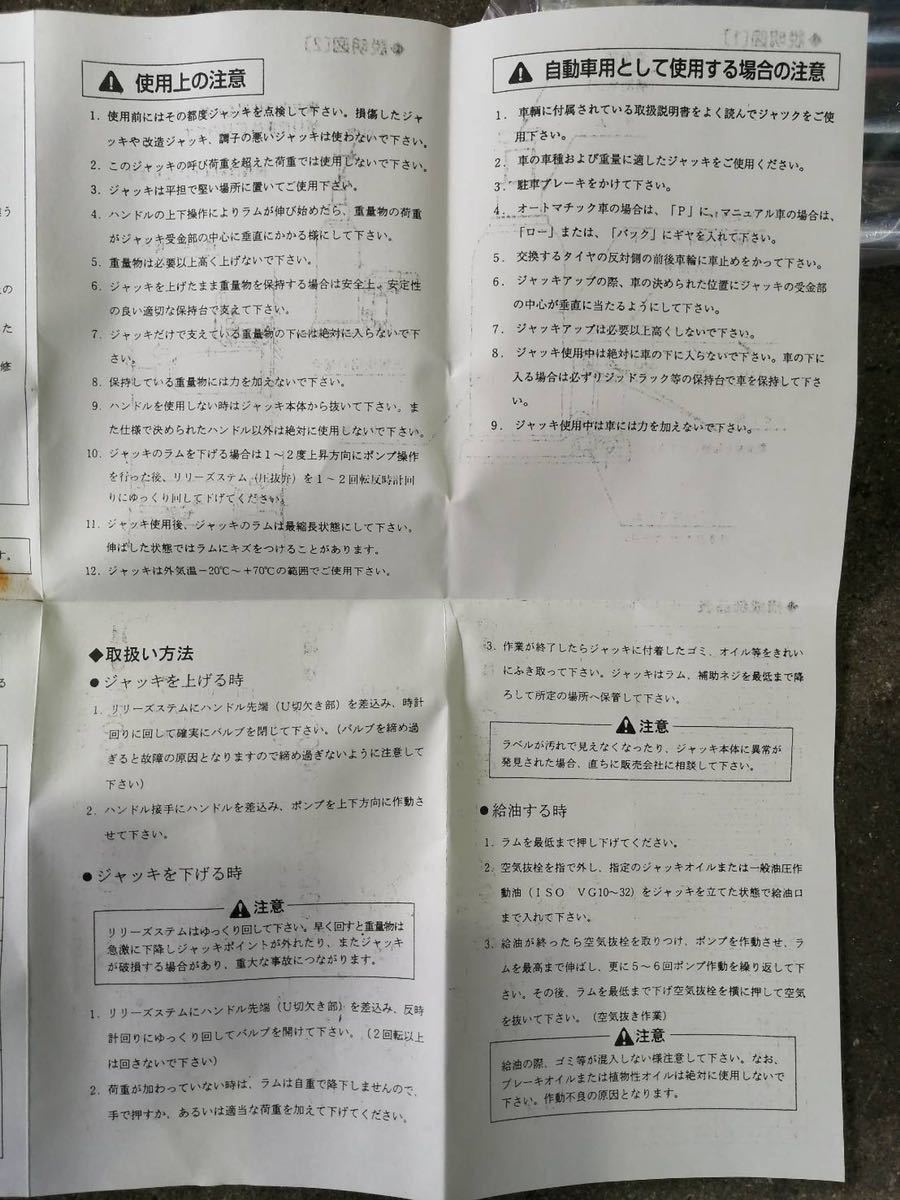 使用上の注意
1. 使用前にはその都度ジャッキを点検して下さい。損傷したジャ
ッキや改造ジャッキ、調子の悪いジャッキは使わないで下さい。
2. このジャッキの呼び荷重を超えた荷重では使用しないで下さい。
3. ジャッキは平担で堅い場所に置いてご使用下さい。
4. ハンドルの上下操作によりラムが伸び始めたら、重量物の荷重
がジャッキ受金部の中心に垂直にかかる様にして下さい。
5. 重量物は必要以上高く上げないで下さい。
6. ジャッキを上げたまま重量物を保持する場合は安全上、安定性
の良い適切な保持台で支えて下さい。
7. ジャッキだけで支えている重量物の下には絶対に入らないで下
さい。
8. 保持している重量物には力を加えないで下さい。
9. ハンドルを使用しない時はジャッキ本体から抜いて下さい。ま
た仕様で決められたハンドル以外は絶対に使用しないで下さい。
10. ジャッキのラムを下げる場合は1～2度上昇方向にポンプ操作
を行った後、リリーズステム（圧抜弁）を1～2回転反時計回
りにゆっくり回して下げてください。
11. ジャッキ使用後、ジャッキのラムは最縮長状態にして下さい。
伸ばした状態ではラムにキズをつけることがあります。
12. ジャッキは外気温－20℃～＋70℃の範囲でご使用下さい。
自動車用として使用する場合の注意
1. 車輌に付属されている取扱説明書をよく読んでジャツクをご使
用下さい。
2. 車の車種および重量に適したジャッキをご使用ください。
3. 駐車ブレーキをかけて下さい。
4. オートマチック車の場合は、「P」に、マニュアル車の場合は、
「ロー」または、「バック」にギヤを入れて下さい。
5. 交換するタイヤの反対側の前後車輪に車止めをかって下さい。
6. ジャッキアップの際、車の決められた位置にジャッキの受金部
の中心が垂直に当たるようにして下さい。
7. ジャッキアップは必要以上高くしないで下さい。
8. ジャッキ使用中は絶対に車の下に入らないで下さい。車の下に
入る場合は必ずリジッドラック等の保持台で車を保持して下さ
い。
9. ジャッキ使用中は車には力を加えないで下さい。
◆取扱い方法
●ジャッキを上げる時
1. リリーズステムにハンドル先端（U切欠き部）を差込み、時計
回りに回して確実にバルブを閉じて下さい。（バルブを締め過
ぎると故障の原因となりますので締め過ぎないように注意して
下さい）
2. ハンドル接手にハンドルを差込み、ポンプを上下方向に作動さ
せて下さい。
●ジャッキを下げる時
注意
リリーズステムはゆっくり回して下さい。早く回すと重量物は
急激に下降しジャッキポイントが外れたり、またジャッキ
が破損する場合があり、重大な事故につながります。
1. リリーズステムにハンドル先端（U切欠き部）を差込み、反時
計回りにゆっくり回してバルブを開けて下さい。（2回転以上
は回さないで下さい）
2. 荷重が加わっていない時は、ラムは自重で降下しませんので、
手で押すか、あるいは適当な荷重を加えて下げてください。
3. 作業が終了したらジャッキに付着したゴミ、オイル等をきれい
にふき取って下さい。ジャッキはラム、補助ネジを最低まで降
ろして所定の場所へ保管して下さい。
注意
ラベルが汚れて見えなくなったり、ジャッキ本体に異常が
発見された場合、直ちに販売会社に相談して下さい。
●給油する時
1. ラムを最低まで押し下げてください。
2. 空気抜栓を指で外し、指定のジャッキオイルまたは一般油圧作
動油（ISO VG10～32）をジャッキを立てた状態で給油口
まで入れて下さい。
3. 給油が終ったら空気抜栓を取りつけ、ポンプを作動させ、ラ
ムを最高まで伸ばし、更に5～6回ポンプ作動を繰り返して下
さい。その後、ラムを最低まで下げ空気抜栓を横に押して空気
を抜いて下さい。（空気抜き作業）
注意
給油の際、ゴミ等が混入しない様注意して下さい。なお、
ブレーキオイルまたは植物性オイルは絶対に使用しないで
下さい。作動不良の原因となります。